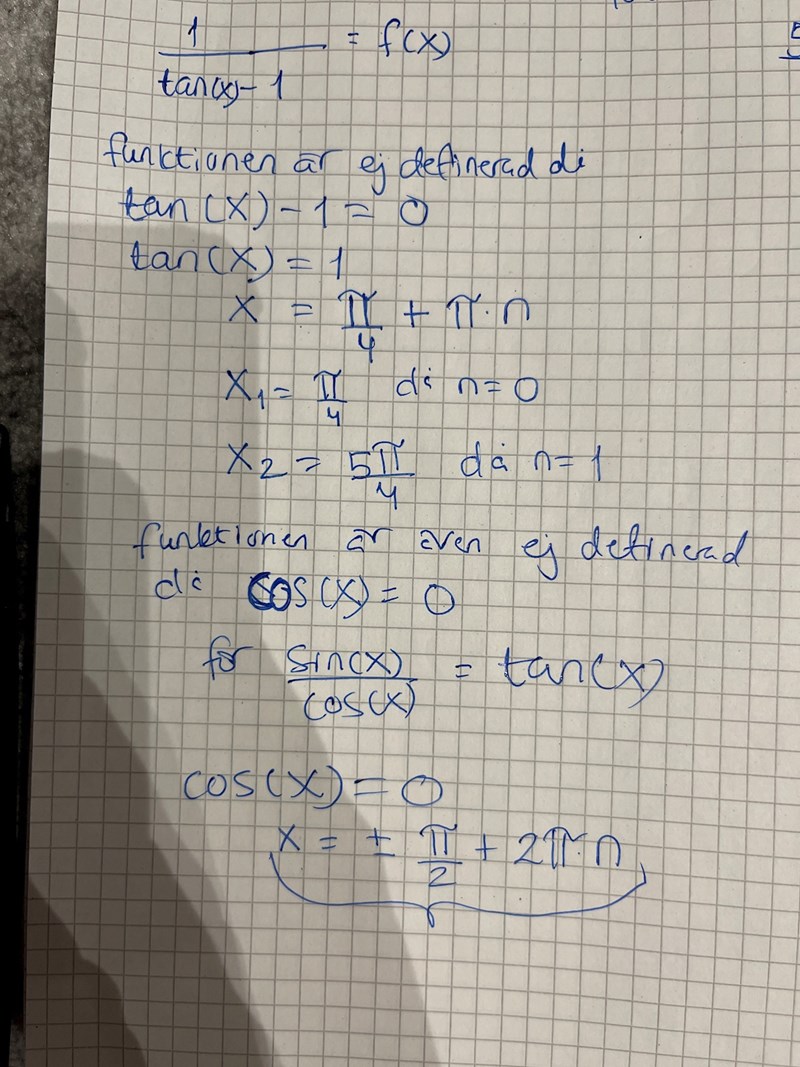 1 / tan(x)-1 = f(x)
funktionen är ej definerad di
tan(x)-1 = 0
tan(x) = 1
x = π/4 + π·n
x₁ = π/4 då n=0
x₂ = 5π/4 då n=1
funktionen är även ej definerad
då cos(x) = 0
för sin(x)/cos(x) = tan(x)
cos(x) = 0
x = ± π/2 + 2π·n